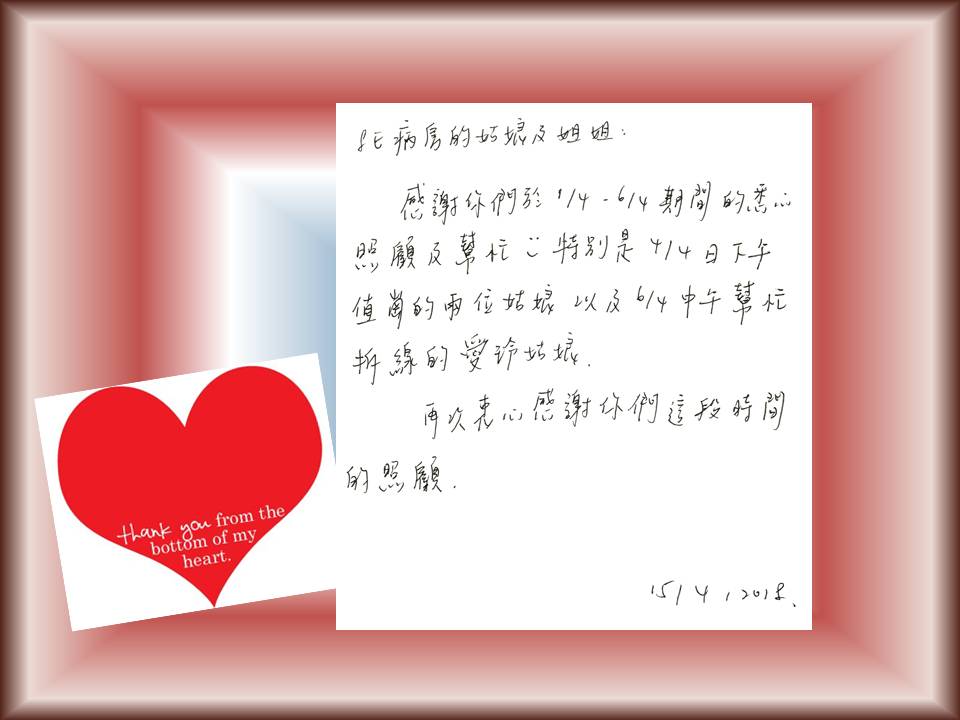 8E病房的姑娘及姐姐：
感謝你們於1/4-6/4期間的悉心
照顧及幫忙 特別是4/4日下午
值崗的兩位姑娘 以及6/4中午幫忙
拆線的愛玲姑娘.
再次衷心感謝你們這段時間
的照顧.
15/4,2018.
thank you from the
bottom of my
heart.